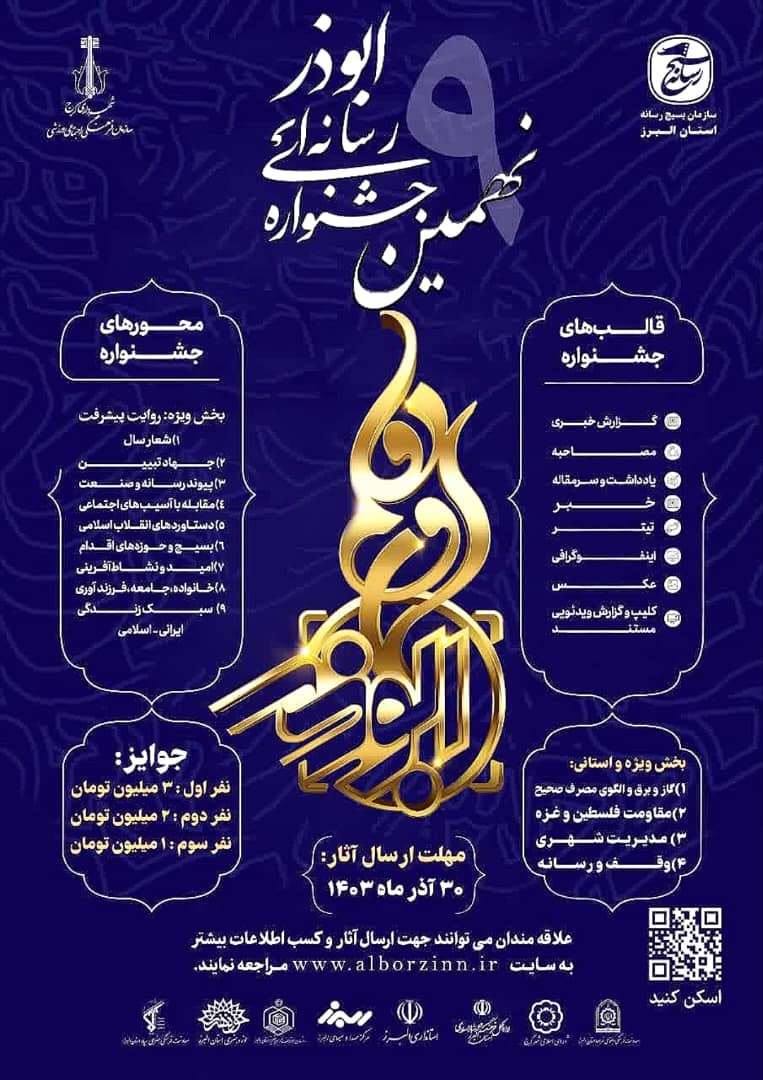 نهمین
جشنواره
رسانه‌ای
ابوذر
۹
سازمان بسیج رسانه
استان البرز
شهرداری کرج
قالب‌های
جشنواره
گزارش خبری
مصاحبه
یادداشت و سرمقاله
خبر
تیتر
اینفوگرافی
عکس
کلیپ و گزارش ویدئویی
مستند
محورهای
جشنواره
بخش ویژه: روایت پیشرفت
۱) شعار سال
۲) جهاد تبیین
۳) پیوند رسانه و صنعت
۴) مقابله با آسیب‌های اجتماعی
۵) دستاوردهای انقلاب اسلامی
۶) بسیج و حوزه‌های اقدام
۷) امید و نشاط آفرینی
۸) خانواده، جامعه، فرزندآوری
۹) سبک زندگی
ایرانی - اسلامی
بخش ویژه و استانی:
۱) گاز و برق و الگوی مصرف صحیح
۲) مقاومت فلسطین و غزه
۳) مدیریت شهری
۴) وقف و رسانه
جوایز:
نفر اول : ۳ میلیون تومان
نفر دوم : ۲ میلیون تومان
نفر سوم : ۱ میلیون تومان
مهلت ارسال آثار:
۳۰ آذر ماه ۱۴۰۳
علاقه مندان می توانند جهت ارسال آثار و کسب اطلاعات بیشتر
به سایت www.alborzinn.ir مراجعه نمایند.
اسکن کنید
استانداری البرز